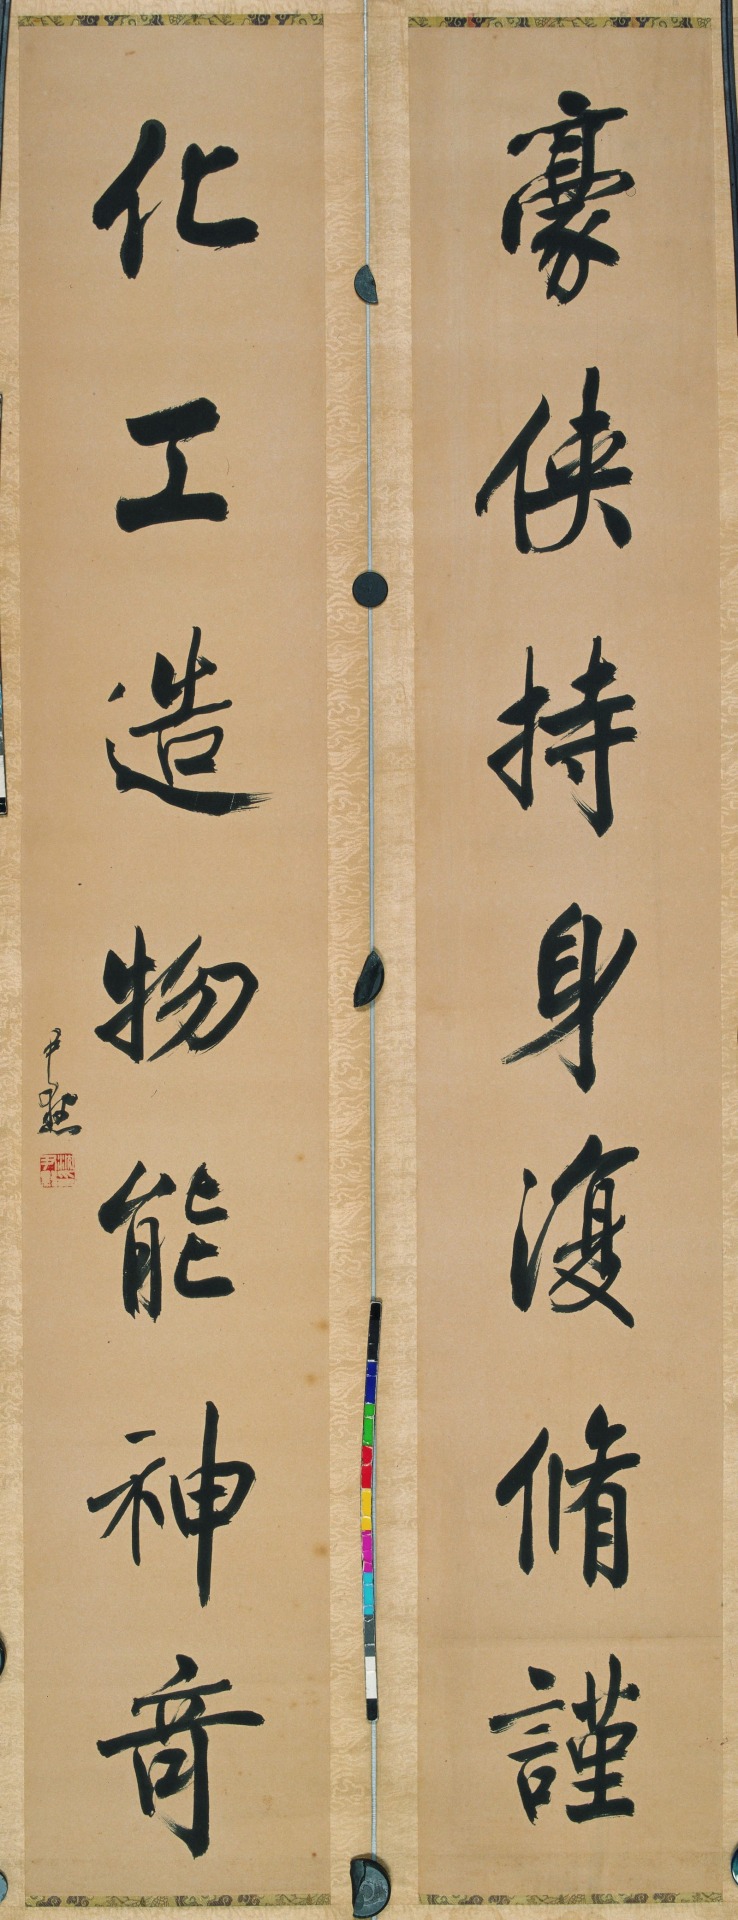 豪俠持身復脩謹
化工造物能神奇
尹默